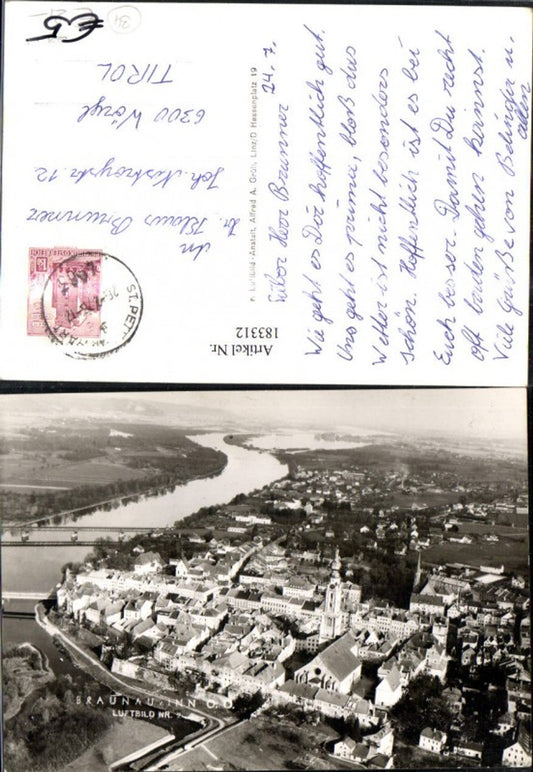 €5
34
An
Hr. Klaus Brunner
Joh. Nestroystr. 12
6300 Wörgl
TIROL
ST. PETER
Luftbild-Anstalt, Alfred A. Groß, Linz/D Hessenplatz 19
24. 7.
Lieber Herr Brunner
Wie geht es Dir hoffentlich gut.
Uns geht es prima, bloß das
Wetter ist nicht besonders
schön. Hoffentlich ist es bei
Euch besser. Damit Du recht
oft baden gehen kannst.
Viele Grüße von
u.
allen
Artikel Nr.
183312
BRAUNAU-INN O.Ö.
LUFTBILD NR.